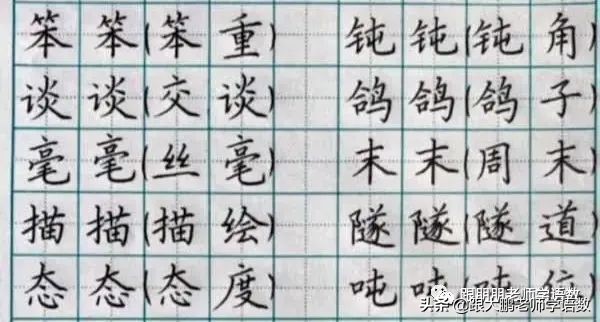 笨 笨(笨重) 钝 钝(钝角)
谈 谈(交谈) 鸽 鸽(鸽子)
毫 毫(丝毫) 末 末(周末)
描 描(描绘) 隧 隧(隧道)
态 态(态度) 吨 吨(吨
跟朋朋老师学语数
头条@跟大鹏老师学语数